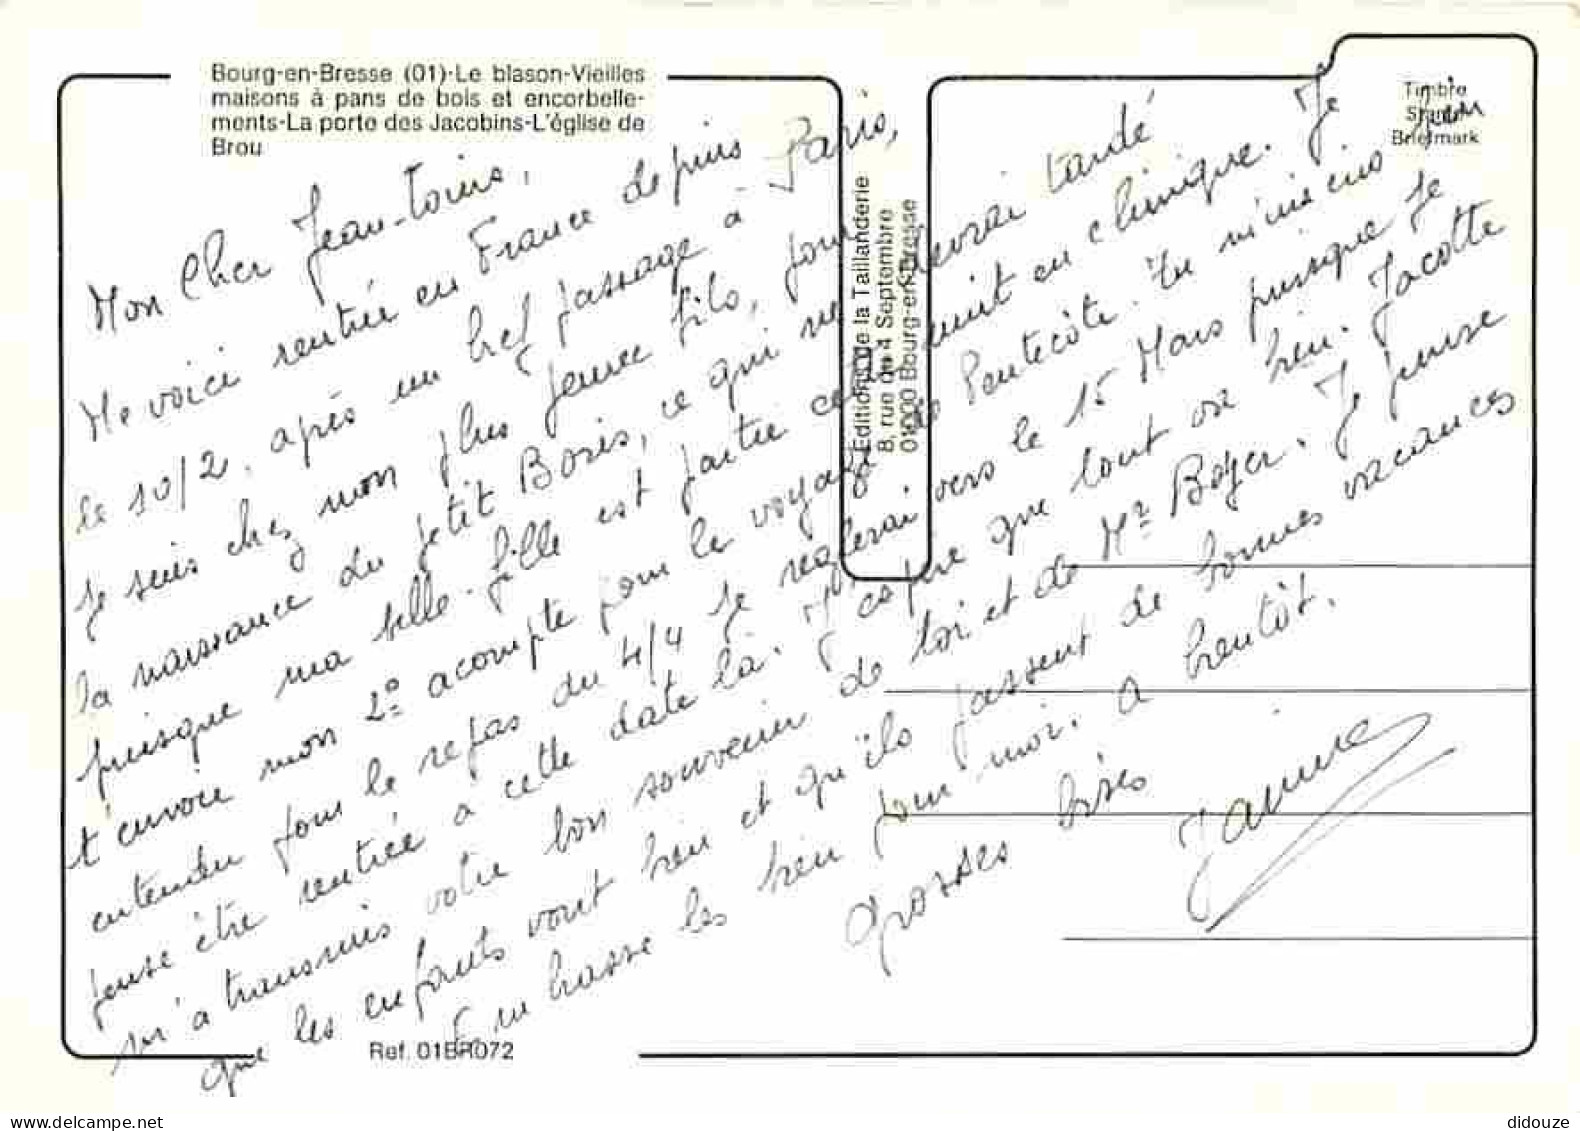 Bourg-en-Bresse (01)-Le blason-Vieilles
maisons à pans de bois et encorbelle-
ments-La porte des Jacobins-L'église de
Brou
Timbre
Stamp
Briefmark
Mon Cher Jean-
Me voici rentrée en France depuis
le 10/2. après un bref passage à Paris,
je suis chez mon plus jeune fils, pour
la naissance du petit Boris, ce qui ne devrai tardé
puisque ma belle-fille est partie cette nuit en clinique. Je
t'envoie mon 2º acompte pour le voyage de Pentecôte. Tu m'inscris bien
entendu pour le repas du 4/4 je reglerai vers le 15 Mars puisque je
pense être rentrée à cette date là. J'espère que tout va bien. Jacotte
m'a transmis votre bon souvenir de toi et de Mr Boyer. Je pense
que les enfants vont bien et qu'ils passent de bonnes vacances
Embrasse les bien pour moi. a bientôt.
Grosses bises
Janine
Editions de la Taillanderie
8, rue du 4 Septembre
01000 Bourg-en-Bresse
Ref. 01BR072
www.delcampe.net
didouze